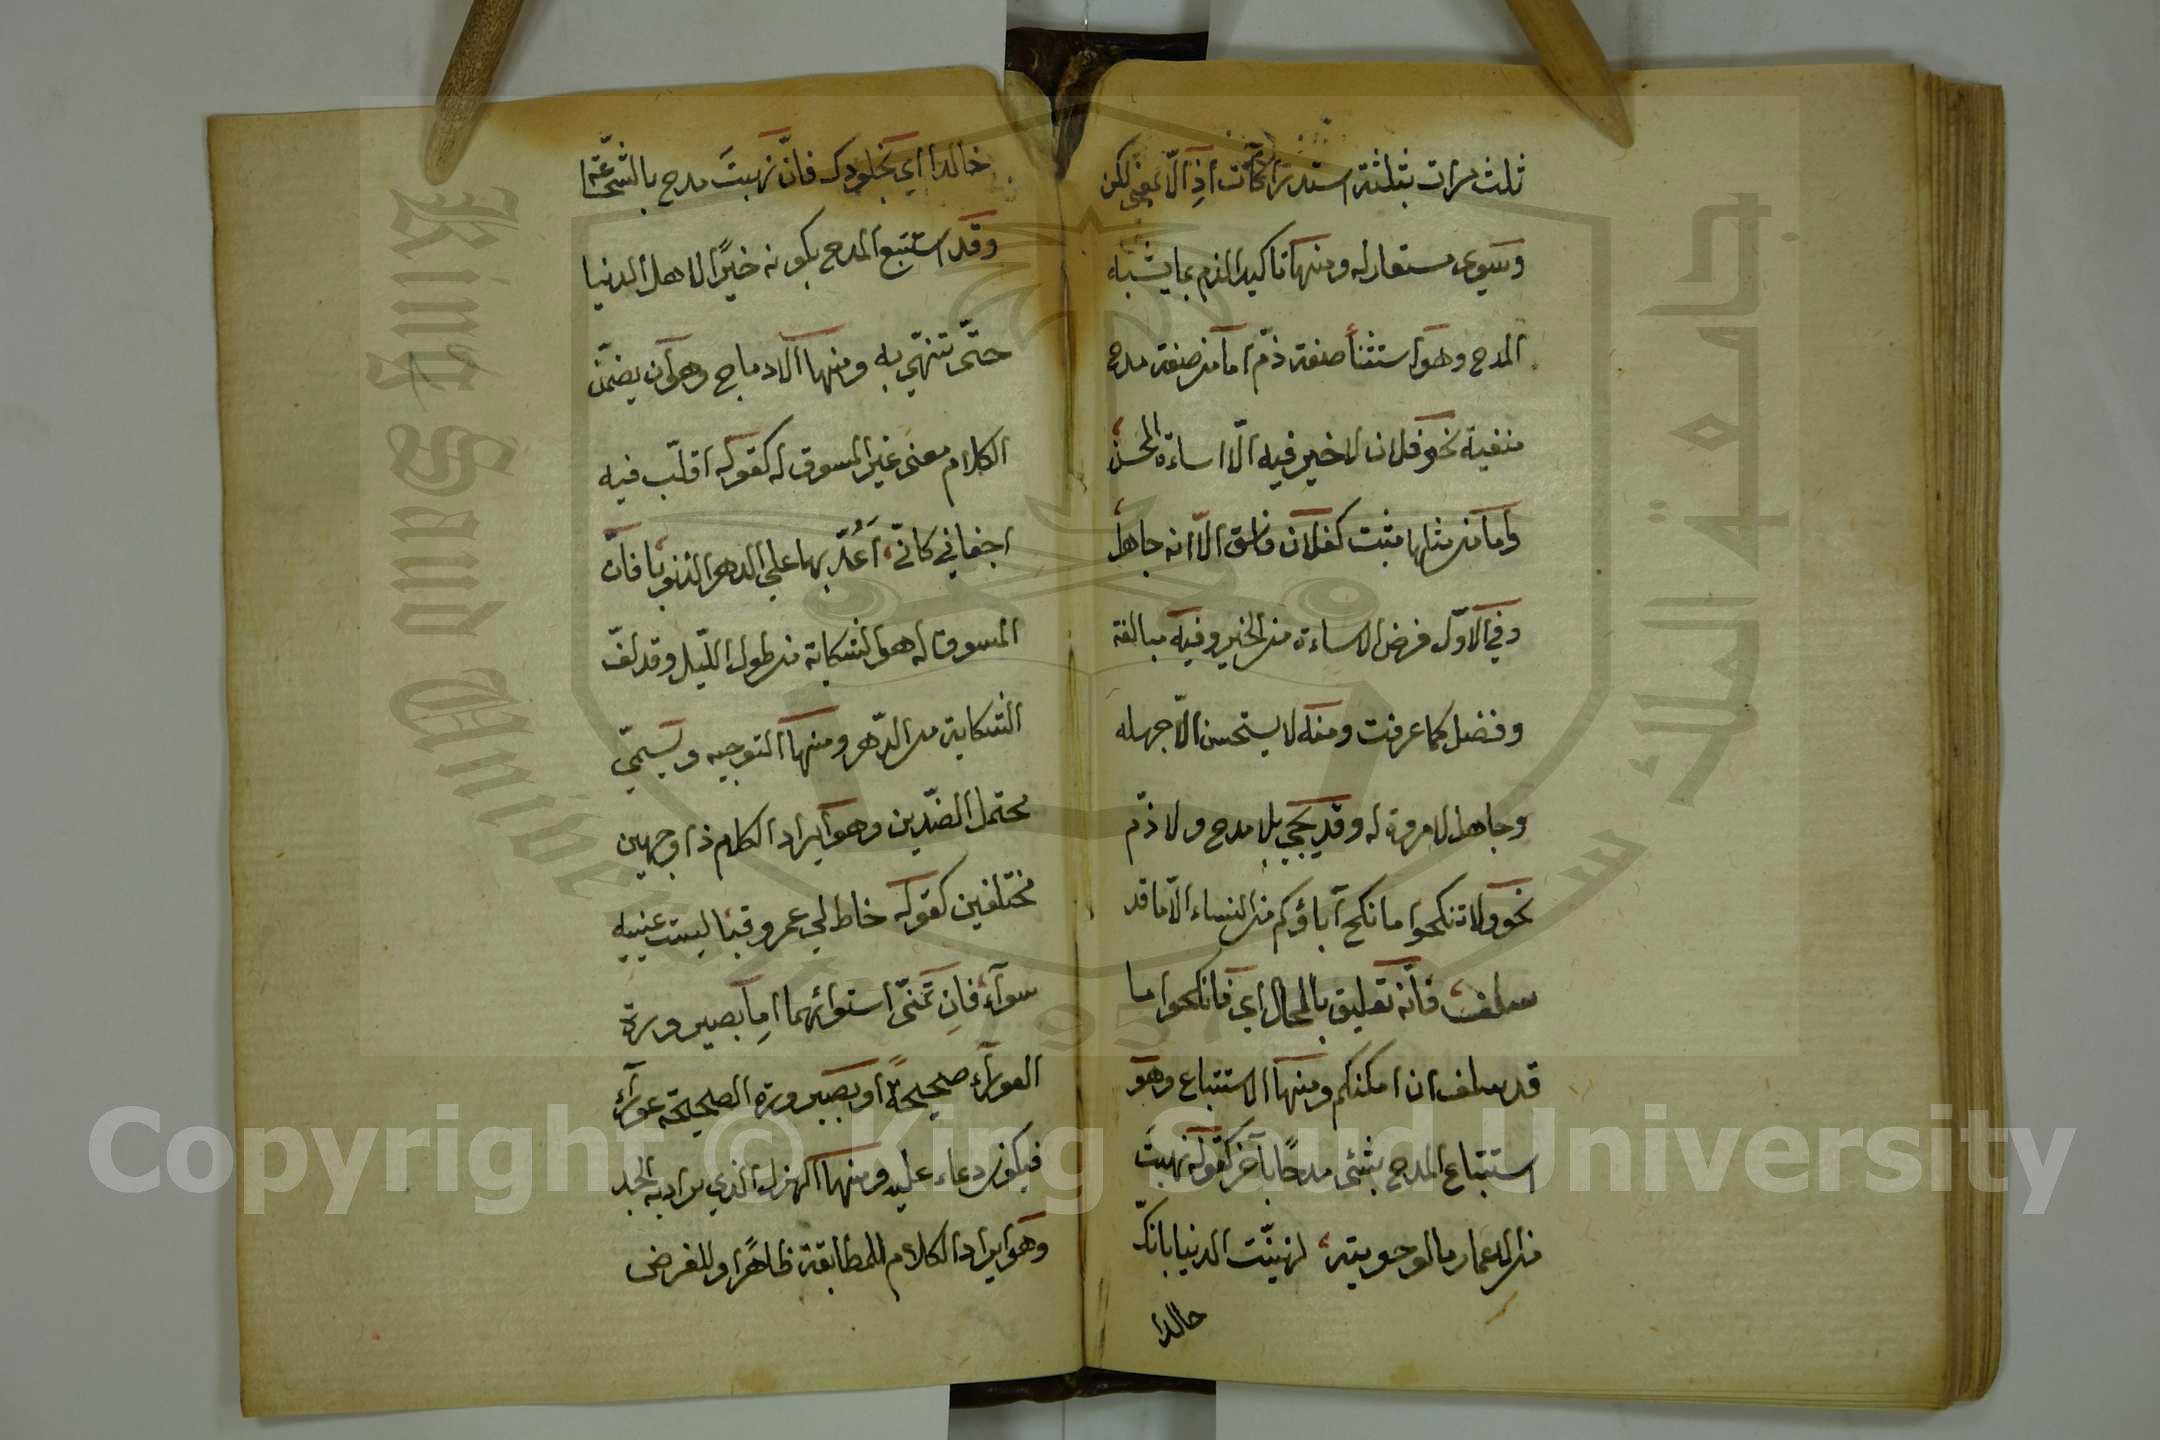 ثلث مرات بثلثة استدراكات اذ الّا بمعنى لكن
وسوى مستعار له ومنها تاكيد الذم بما يشبه
المدح وهو استثنأ صفة ذمّ اما من صفة مدح
منفية نحو فلان لا خير فيه الّا اساءة المحسن
واما من مثلها مثبت كفلان فاسق الّا انه جاهل
وفي الاوّل فرض الاساءة من الخير وفيه مبالغة
وفضل كما عرفت ومنه لا يستحسن الّا جهله
وجاهل لا مروة له وقد يجيء بلا مدح ولا ذمّ
نحو ولا تنكحوا ما نكح آباؤكم من النساء الّا ما قد
سلف فانّه تعليق بالمحال اي فانكحوا ما
قد سلف ان امكنكم ومنها الاستتباع وهو
استتباع المدح بشئ مدحًا بآخر كقوله نهبت
من الاعمار ما لو حويته لهنّئت الدنيا بانّك
خالدا
خالدا اي بخلودك فانّ نهبت مدح بالشجاعة
وقد استتبع المدح بكونه خيرًا لاهل الدنيا
حتّى تنهّى به ومنها الادماج وهو ان يضمّن
الكلام معنى غير المسوق له كقوله اقلّب فيه
اجفاني كانّي اَعُدّ بها على الدهر الذنوبا فانّ
المسوق له هو الشكاية من طول اللّيل وقد لفّ
الشكاية من الدّهر ومنها التوجيه ويسمّى
محتمل الضدّين وهو ايراد الكلام ذا وجهين
مختلفين كقوله خاط لي عمرو قبا ليت عينيه
سوآء فان تمنّى استوائهما اما بصيرورة
العورآء صحيحةً او بصيرورة الصحيحة عورآء
فيكون دعاء عليه ومنها الهزل الذي يراد به الجد
وهو ايراد الكلام للمطابقة ظاهرًا وللغرض
King Saud University
جامعة الملك سعود
1957
Copyright © King Saud University